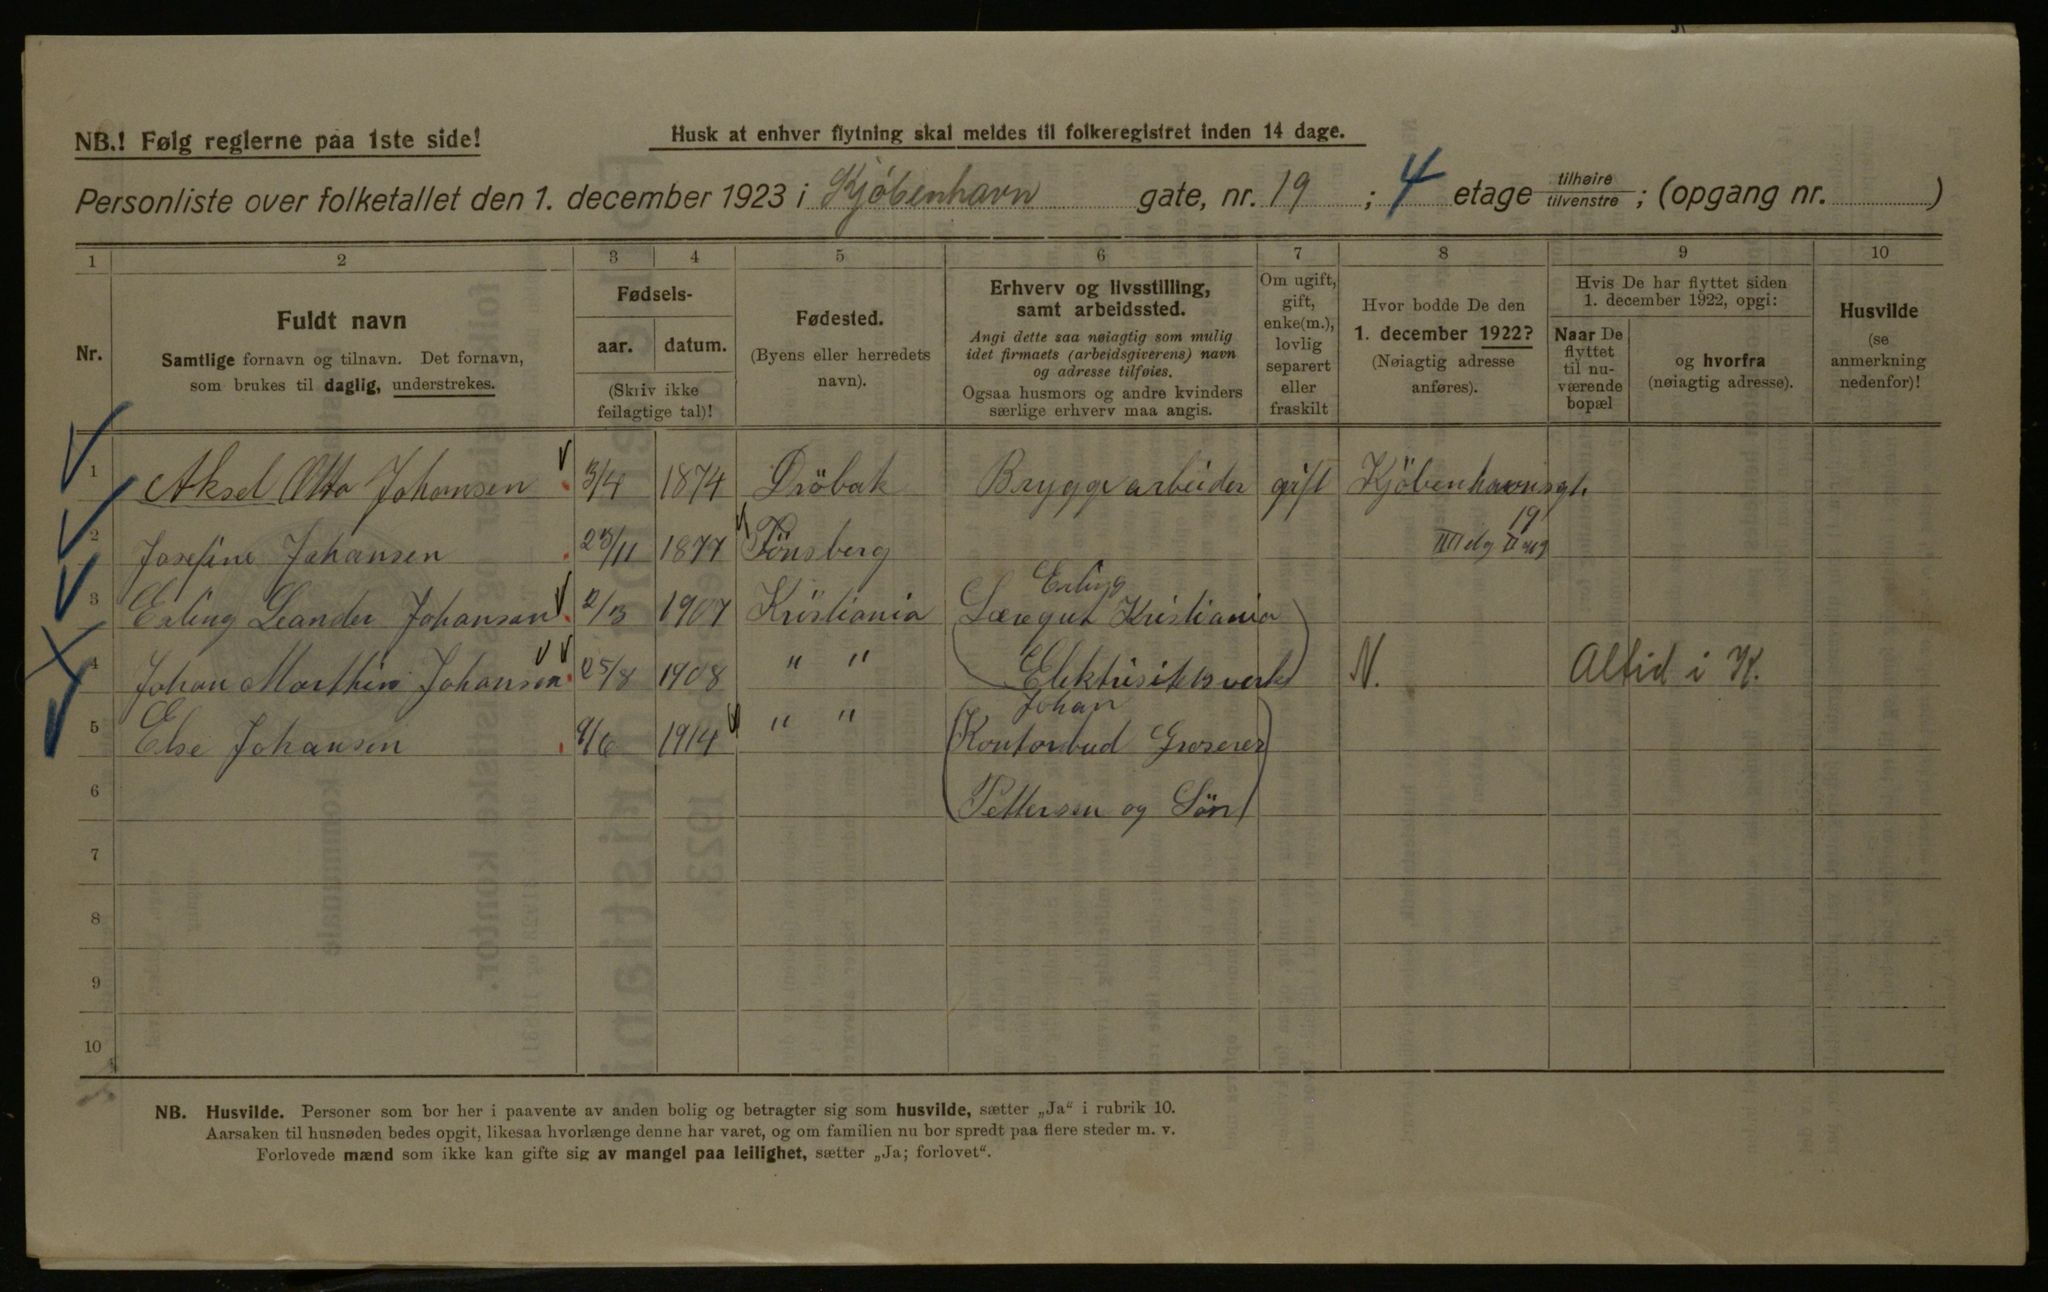 NB.! Følg reglerne paa 1ste side!
Husk at enhver flytning skal meldes til folkeregistret inden 14 dage.
Personliste over folketallet den 1. december 1923 i Kjøbenhavn gate, nr. 19 ; 4 etage tilhøire tilvenstre ; (opgang nr. )
1 2 3 4 5 6 7 8 9 10
Nr.
Fuldt navn
Samtlige fornavn og tilnavn. Det fornavn,
som brukes til daglig, understrekes.
Fødsels-
aar. datum.
(Skriv ikke
feilagtige tal)!
Fødested.
(Byens eller herredets
navn).
Erhverv og livsstilling,
samt arbeidssted.
Angi dette saa nøiagtig som mulig
idet firmaets (arbeidsgiverens) navn
og adresse tilføies.
Ogsaa husmors og andre kvinders
særlige erhverv maa angis.
Om ugift,
gift,
enke(m.),
lovlig
separert
eller
fraskilt
Hvor bodde De den
1. december 1922?
(Nøiagtig adresse
anføres).
Hvis De har flyttet siden
1. december 1922, opgi:
Naar De
flyttet
til nu-
værende
bopæl
og hvorfra
(nøiagtig adresse).
Husvilde
(se
anmerkning
nedenfor)!
1 Aksel Otto Johansen 3/4 1874 Dröbak Bryggearbeider gift Kjöbenhavnsgt.
19
2 Josefine Johansen 23/11 1877 Tönsberg
Erling
3 Erling Leander Johansen 2/3 1907 Kristiania Læregut Kristiania
4 Johan Marthin Johansen 25/8 1908 " " Elektrisitetsverk N. Altid i K.
Johan
5 Else Johansen 9/6 1914 " " (Kontorbud Groserer
6 Pettersen og Sön)
7
8
9
10
NB. Husvilde. Personer som bor her i paavente av anden bolig og betragter sig som husvilde, sætter „Ja“ i rubrik 10.
Aarsaken til husnøden bedes opgit, likesaa hvorlænge denne har varet, og om familien nu bor spredt paa flere steder m. v.
Forlovede mænd som ikke kan gifte sig av mangel paa leilighet, sætter „Ja; forlovet“.